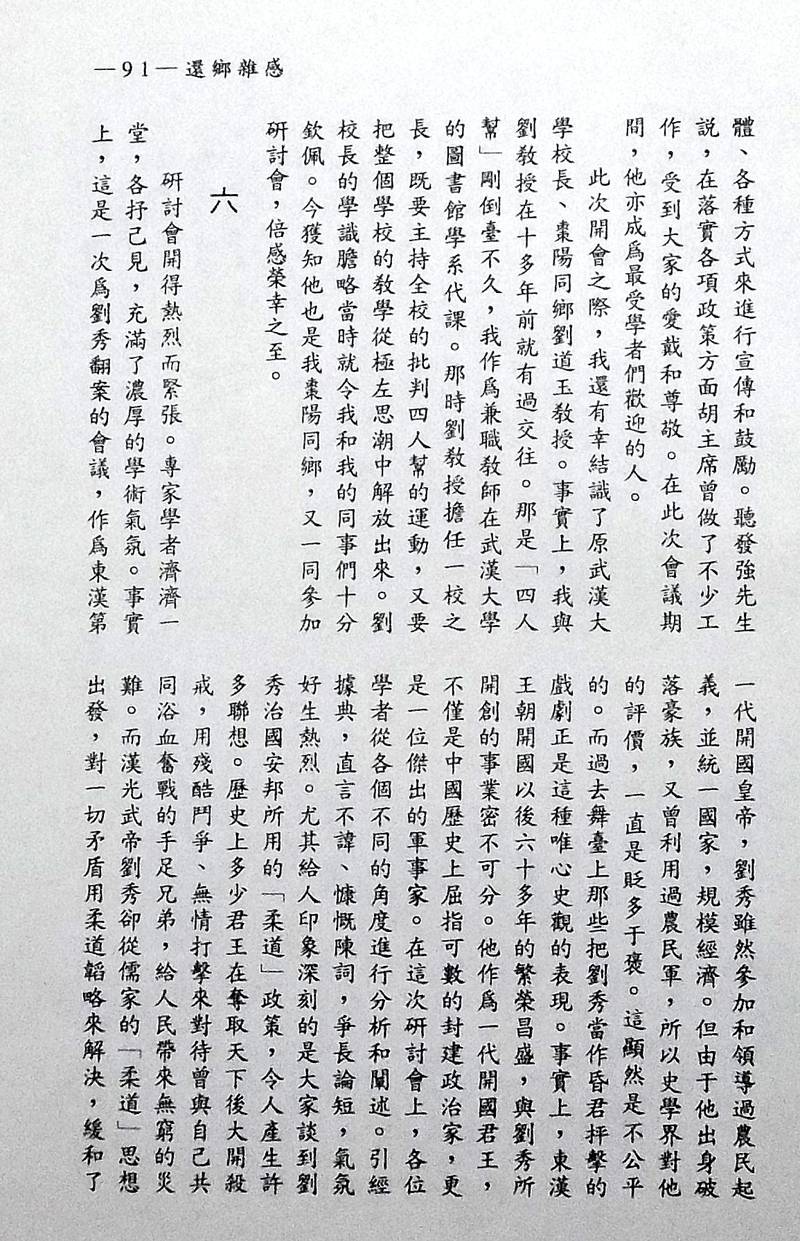 —91—還鄉雜感
體、各種方式來進行宣傳和鼓勵。聽發強先生
說，在落實各項政策方面胡主席曾做了不少工
作，受到大家的愛戴和尊敬。在此次會議期
間，他亦成爲最受學者們歡迎的人。
此次開會之際，我還有幸結識了原武漢大
學校長、棗陽同鄉劉道玉教授。事實上，我與
劉教授在十多年前就有過交往。那是「四人
幫」剛倒臺不久，我作爲兼職教師在武漢大學
的圖書館學系代課。那時劉教授擔任一校之
長，既要主持全校的批判四人幫的運動，又要
把整個學校的教學從極左思潮中解放出來。劉
校長的學識膽略當時就令我和我的同事們十分
欽佩。今獲知他也是我棗陽同鄉，又一同參加
研討會，倍感榮幸之至。
六
研討會開得熱烈而緊張。專家學者濟濟一
堂，各抒己見，充滿了濃厚的學術氣氛。事實
上，這是一次爲劉秀翻案的會議，作爲東漢第
一代開國皇帝，劉秀雖然參加和領導過農民起
義，並統一國家，規模經濟。但由于他出身破
落豪族，又曾利用過農民軍，所以史學界對他
的評價，一直是貶多于褒。這顯然是不公平
的。而過去舞臺上那些把劉秀當作昏君抨擊的
戲劇正是這種唯心史觀的表現。事實上，東漢
王朝開國以後六十多年的繁榮昌盛，與劉秀所
開創的事業密不可分。他作爲一代開國君王，
不僅是中國歷史上屈指可數的封建政治家，更
是一位傑出的軍事家。在這次研討會上，各位
學者從各個不同的角度進行分析和闡述。引經
據典，直言不諱、慷慨陳詞，爭長論短，氣氛
好生熱烈。尤其給人印象深刻的是大家談到劉
秀治國安邦所用的「柔道」政策，令人產生許
多聯想。歷史上多少君王在奪取天下後大開殺
戒，用殘酷鬥爭、無情打擊來對待曾與自己共
同浴血奮戰的手足兄弟，給人民帶來無窮的災
難。而漢光武帝劉秀卻從儒家的「柔道」思想
出發，對一切矛盾用柔道韜略來解決，緩和了